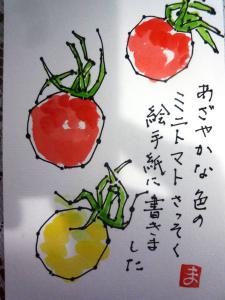 あざやかな色の
ミニトマトさっそく
絵手紙に書きま
した
ま